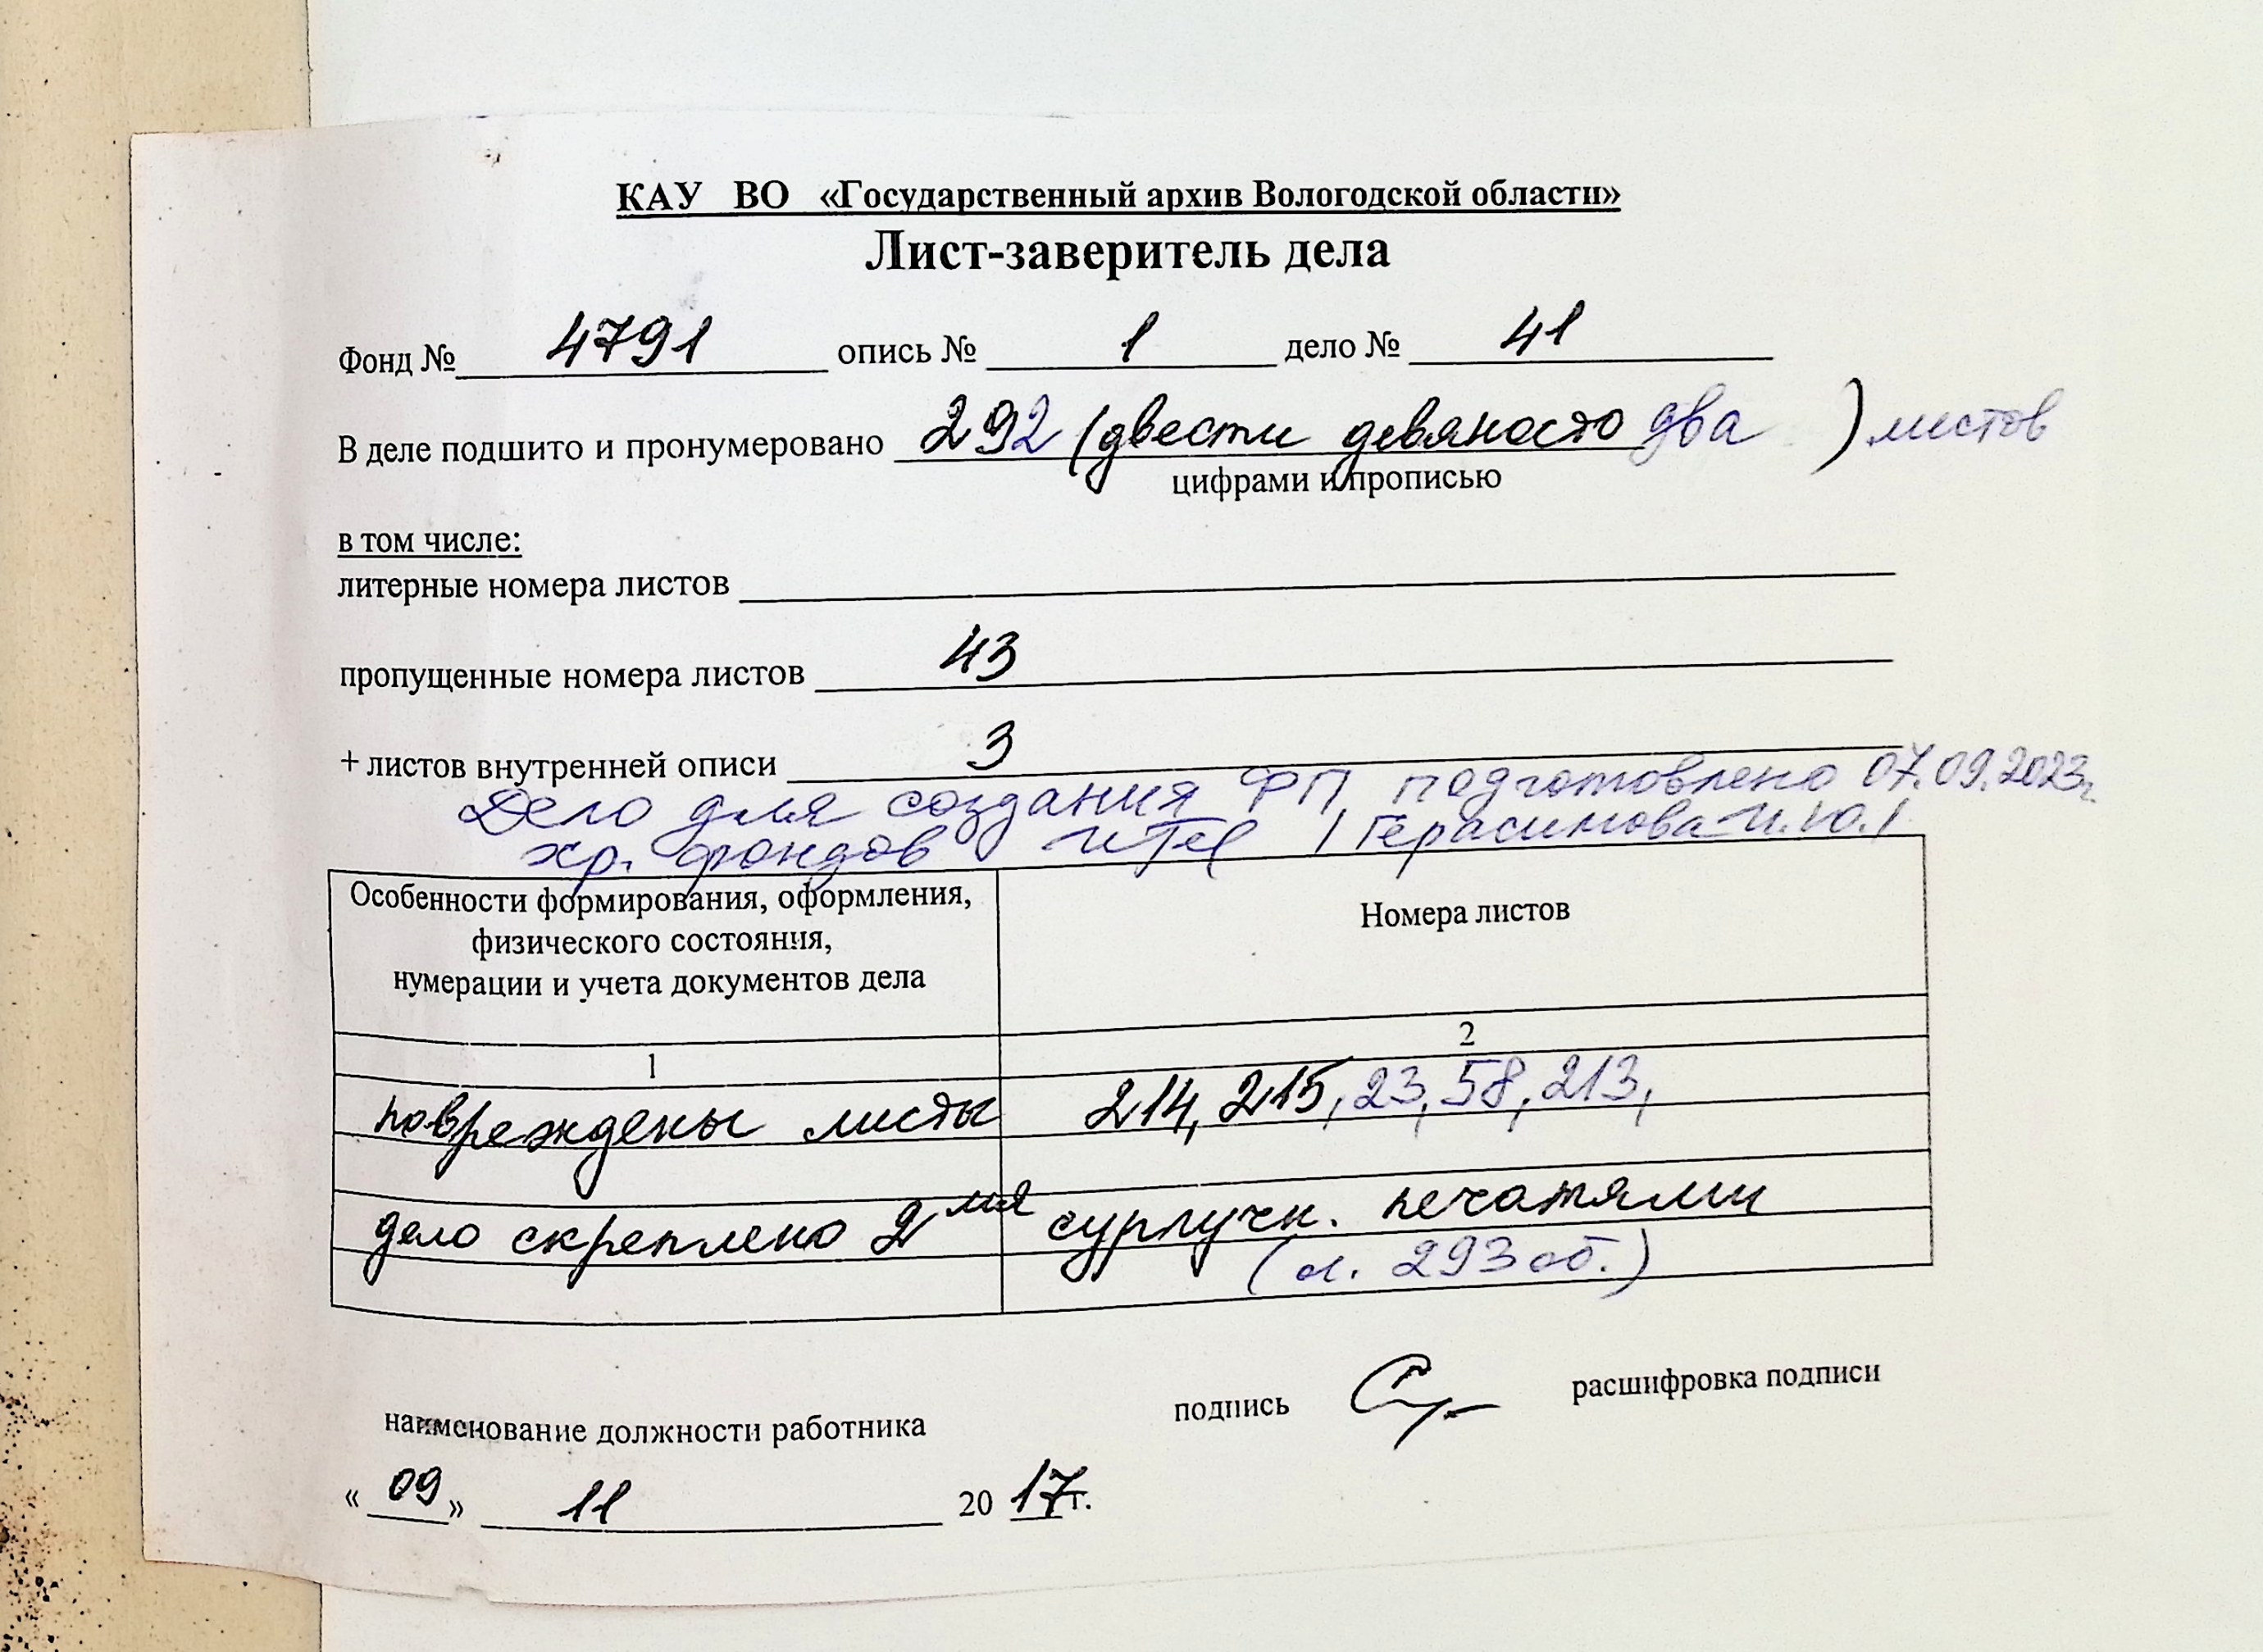 КАУ ВО «Государственный архив Вологодской области»
Лист-заверитель дела
Фонд № 4791 опись № 1 дело № 41
В деле подшито и пронумеровано 292 (двести девяносто два ) листов
цифрами и прописью
в том числе:
литерные номера листов
пропущенные номера листов 43
+ листов внутренней описи 3
Дело для создания ФП подготовлено 07.09.2023г.
хр. фондов / Герасимова И.Ю./
Особенности формирования, оформления,
физического состояния,
нумерации и учета документов дела
Номера листов
1
2
повреждены листы 214, 215, 23, 58, 213,
дело скреплено 2мя сургучн. печатями
(л. 293 об.)
подпись расшифровка подписи
наименование должности работника
« 09 » 11 20 17 г.